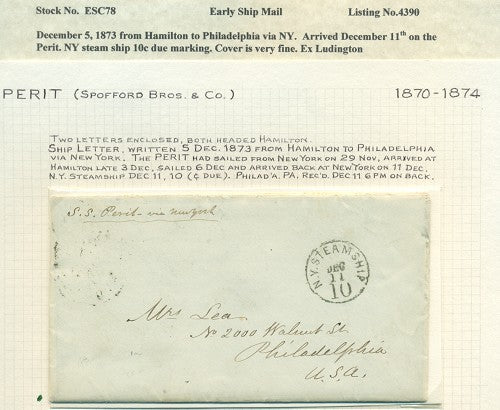 Stock No. ESC78 Early Ship Mail Listing No.4390
December 5, 1873 from Hamilton to Philadelphia via NY. Arrived December 11th on the
Perit. NY steam ship 10c due marking. Cover is very fine. Ex Ludington
PERIT (SPOFFORD BROS. & CO.) 1870-1874
TWO LETTERS ENCLOSED, BOTH HEADED HAMILTON.
SHIP LETTER, WRITTEN 5 DEC. 1873 FROM HAMILTON TO PHILADELPHIA
VIA NEW YORK. THE PERIT HAD SAILED FROM NEW YORK ON 29 NOV, ARRIVED AT
HAMILTON LATE 3 DEC, SAILED 6 DEC AND ARRIVED BACK AT NEW YORK ON 11 DEC.
N.Y. STEAMSHIP DEC 11, 10 (¢ DUE). PHILAD'A. PA, REC'D. DEC 11 6 PM ON BACK.
S.S. Perit - via New York
N.Y. STEAMSHIP
DEC
11
10
Mrs Lea
No 2000 Walnut St.
Philadelphia
U.S.A.